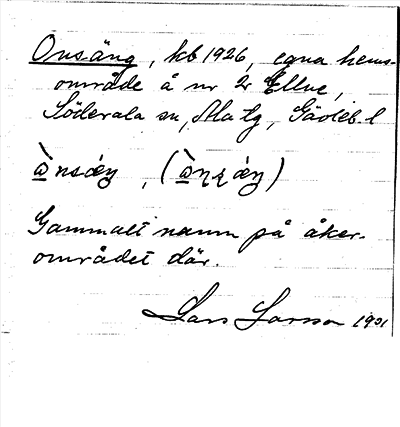 Onsäng, kb 1926, egna hems-
område å nr 2 Ellne,
Söderala sn, Ala tg, Gävleb. l
ò̱nsæŋ, (
Gammalt namn på åker-
området där.
Lars Larsson 1931